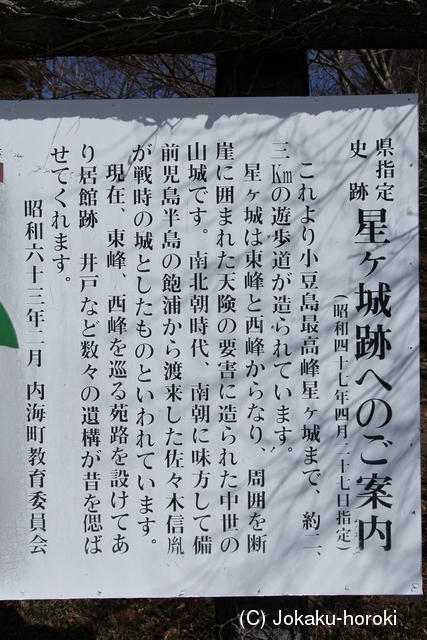 県指定
史跡 星ヶ城跡へのご案内
(昭和四十七年四月二十七日指定)
これより小豆島最高峰星ヶ城まで、約二、
三Kmの遊歩道が造られています。
星ヶ城は東峰と西峰からなり、周囲を断
崖に囲まれた天険の要害に造られた中世の
山城です。南北朝時代、南朝に味方して備
前児島半島の飽浦から渡来した佐々木信胤
が戦時の城としたものといわれています。
現在、東峰、西峰を巡る苑路を設けてあ
り居館跡 井戸など数々の遺構が昔を偲ば
せてくれます。
昭和六十三年二月 内海町教育委員会
(C) Jokaku-horoki